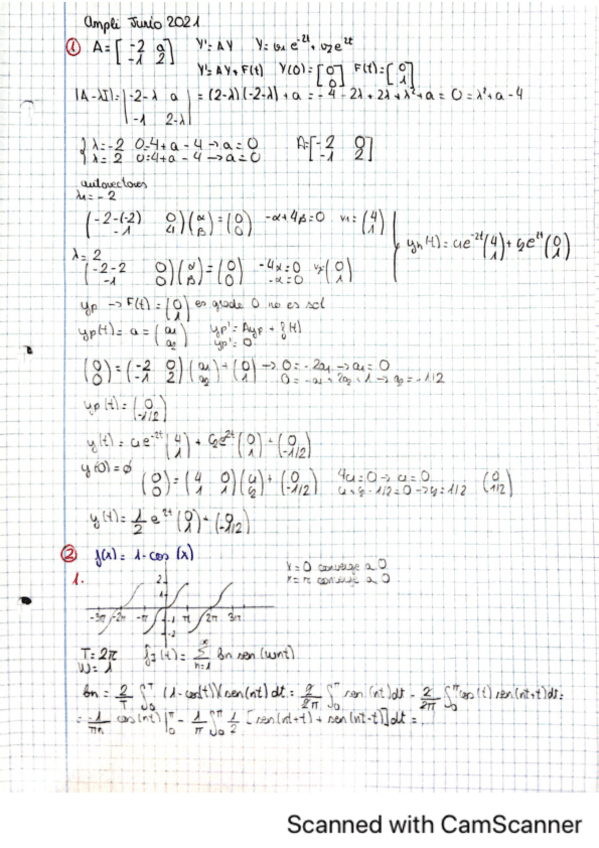 Ampli Junio 2021
① A = [-2 a; -1 2]  Y' = AY  Y = v1 e^-2t + v2 e^2t
Y' = AY + F(t)  Y(0) = [0; 0]  F(t) = [0; 1]
|A-λI| = |-2-λ a; -1 2-λ| = (2-λ)(-2-λ) + a = -4 - 2λ + 2λ + λ² + a = 0 = λ² + a - 4
{ λ = -2  0 = 4 + a - 4 → a = 0  A = [-2 0; -1 2]
λ = 2  0 = 4 + a - 4 → a = 0
autovectores
λ1 = -2
(-2-(-2) 0; -1 4)(α; β) = (0; 0)  -α + 4β = 0  v1 = (4; 1)
yh(t) = c1 e^-2t (4; 1) + c2 e^2t (0; 1)
λ = 2
(-2-2 0; -1 0)(α; β) = (0; 0)  -4α = 0  -α = 0  v2 = (0; 1)
yp → F(t) = (0; 1) es grado 0 no es sol
yp(t) = a = (a1; a2)  yp' = Ayp + f(t)
yp' = 0
(0; 0) = (-2 0; -1 2)(a1; a2) + (0; 1) → 0 = -2a1 → a1 = 0
0 = -a1 + 2a2 + 1 → a2 = -1/2
yp(t) = (0; -1/2)
y(t) = c1 e^-2t (4; 1) + c2 e^2t (0; 1) + (0; -1/2)
y(0) = ∅
(0; 0) = (4 0; 1 1)(c1; c2) + (0; -1/2)  4c1 = 0 → c1 = 0
c1 + c2 - 1/2 = 0 → c2 = 1/2  (0; 1/2)
y(t) = 1/2 e^2t (0; 1) + (0; -1/2)
② f(x) = 1 - cos(x)
x = 0 converge a 0
x = π converge a 0
1.
2
1
-3π -2π -π π 2π 3π
-1
-2
T = 2π  fI(t) = ∑ n=1 ∞ bn sen(wnt)
W = 1
bn = 2/T ∫0^π (1-cos(t)) sen(nt) dt = 2/2π ∫0^π sen(nt) dt - 2/2π ∫0^π cos(t) sen(nt) dt =
= -1/πn cos(nt) |0^π - 1/π ∫0^π 1/2 [sen(nt+t) + sen(nt-t)] dt =
Scanned with CamScanner